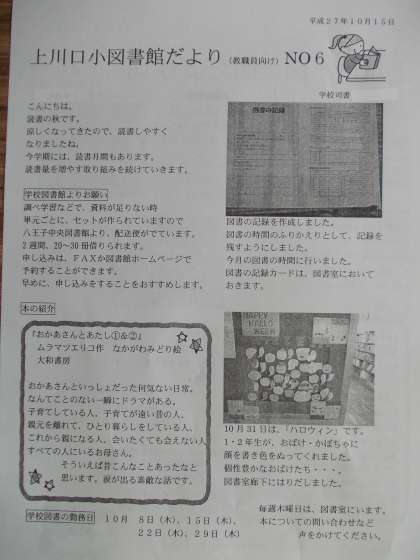 平成27年10月15日
上川口小図書館だより（教職員向け） NO６
学校司書
こんにちは。
読書の秋です。
涼しくなってきたので、読書しやすく
なりましたね。
今学期には、読書月間もあります。
読書量を増やす取り組みを続けていきます。
学校図書館よりお願い
調べ学習などで、資料が足りない時
単元ごとに、セットが作られていますので
八王子中央図書館より、配送便がでています。
２週間、20～30冊借りられます。
申し込みは、ＦＡＸか図書館ホームページで
予約することができます。
早めに、申し込みをすることをおすすめします。
図書の記録
図書の記録を作成しました。
図書の時間のふりかえりとして、記録を
残すようにしました。
今月の図書の時間に行いました。
図書の記録カードは、図書室において
おきます。
本の紹介
『おかあさんとあたし①＆②』
ムラマツエリコ作　なかがわみどり絵
大和書房
おかあさんといっしょだった何気ない日常。
なんてことのない一瞬にドラマがある。
子育てしている人、子育てが遠い昔の人、
親元を離れて、ひとり暮らしをしている人、
これから親になる人、会いたくても会えない人
すべての人にいるお母さん。
そういえば昔こんなことあったなと
思います。涙が出る素敵な話です。
HAPPY
HALLO
WEEN
10月31日は、「ハロウィン」です。
１・２年生が、おばけ・かぼちゃに
顔を書き色をぬってくれました。
個性豊かなおばけたち・・・。
図書室廊下にはりだしました。
学校図書の勤務日　10月　8日（木）、15日（木）、
22日（木）、29日（木）
毎週木曜日は、図書室にいます。
本についての問い合わせなど
声をかけてください。